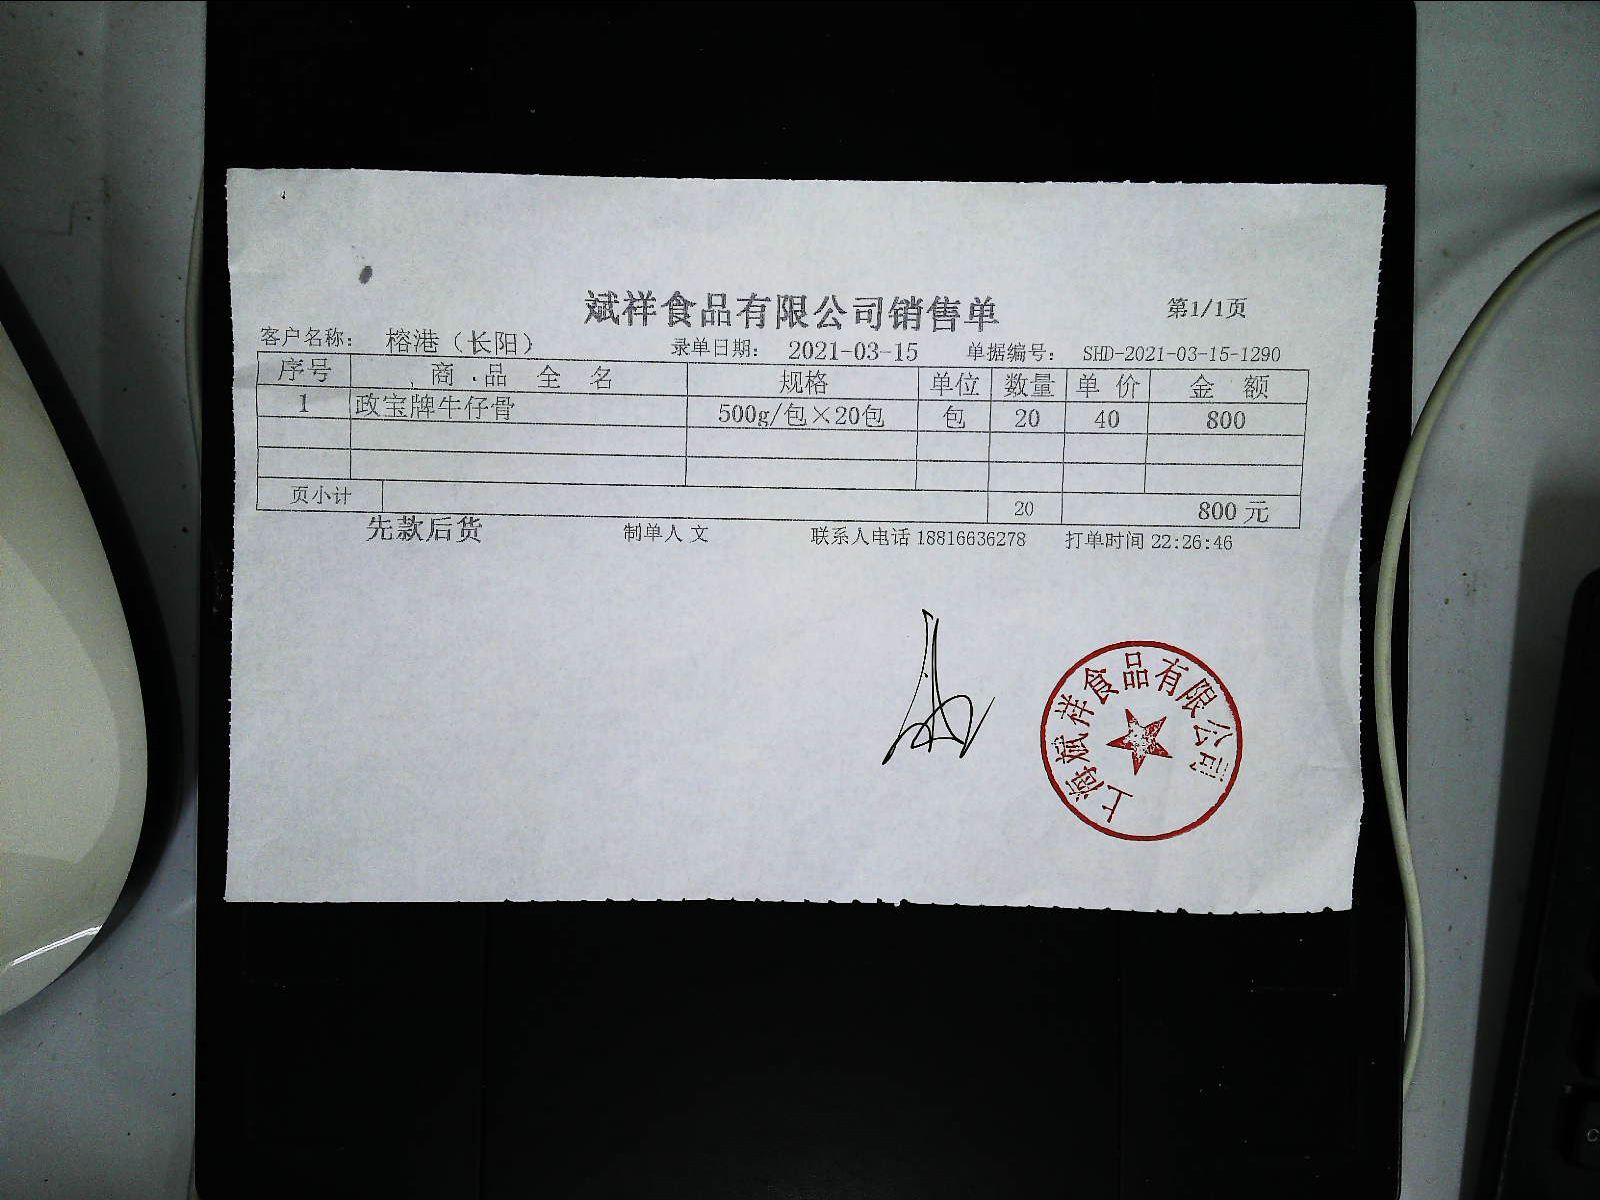 斌祥食品有限公司销售单
第1/1页
客户名称： 榕港（长阳） 录单日期： 2021-03-15 单据编号： SHD-2021-03-15-1290
序号 商品全名 规格 单位 数量 单价 金额
1 政宝牌牛仔骨 500g/包×20包 包 20 40 800
页小计 20 800元
先款后货 制单人 文 联系人电话 18816636278 打单时间 22:26:46
上海斌祥食品有限公司